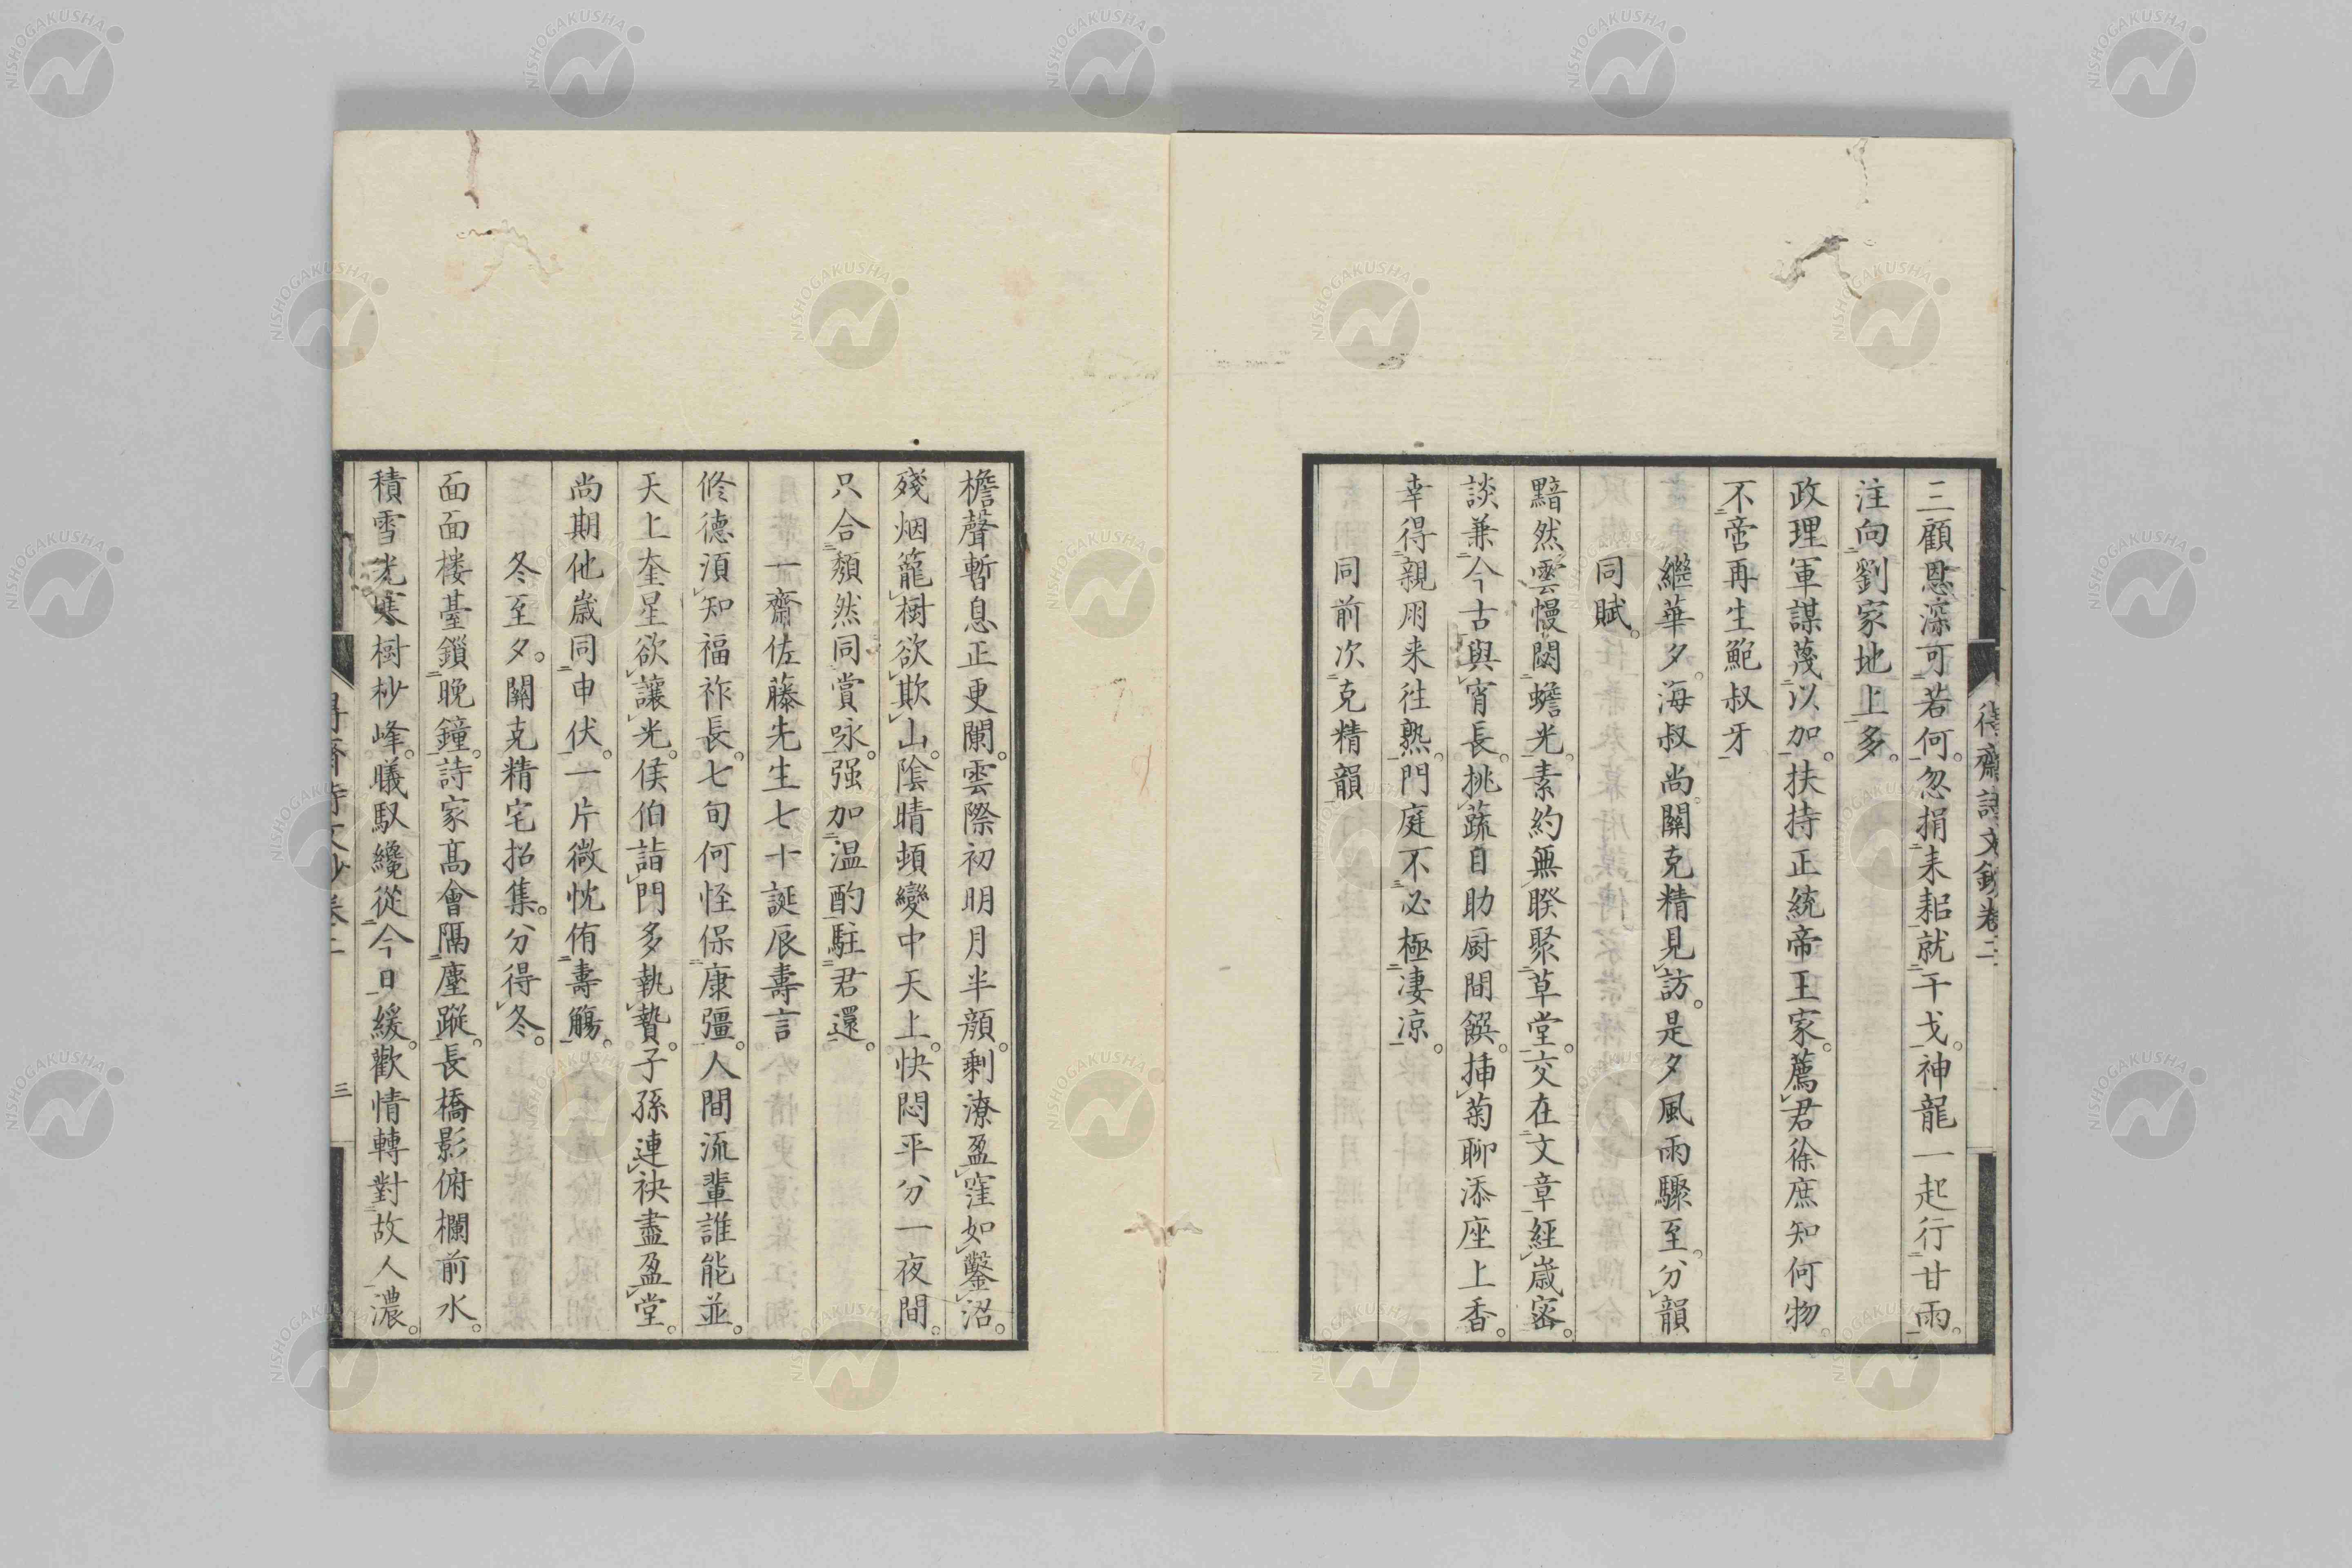 三顧恩深可若何。忽捐耒耜就干戈。神龍一起行甘雨。
注向劉家地上多。
政理軍謀蔑以加。扶持正統帝王家。薦君徐庶知何物。
不啻再生鮑叔牙
繼華夕。海叔尚。關克精見訪。是夕風雨驟至。分韻
同賦。
黯然雲幔閟蟾光。素約無睽聚草堂。交在文章經歲密。
談兼今古與宵長。挑蔬自助厨間饌。挿菊聊添座上香。
幸得親朋来往熟。門庭不必極凄凉。
同前次克精韻
得齋詩文鈔卷二
檐聲暫息正更闌。雲際初明月半顔。剰潦盈窪如鑿沼。
殘烟籠樹欲欺山。陰晴頓變中天上。快悶平分一夜間。
只合頽然同賞咏。强加温酌駐君還。
一齋佐藤先生七十誕辰壽言
修德須知福祚長。七旬何怪保康彊。人間流輩誰能並。
天上奎星欲讓光。侯伯詣門多執贄。子孫連袂盡盈堂。
尚期他歲同申伏。一片微忱侑壽觴。
冬至夕。關克精宅招集。分得冬。
面面楼臺鎖晚鐘。詩家髙會隔塵蹤。長橋影俯欄前水。
積雪光寒樹杪峰。曦馭纔從今日緩。歡情轉對故人濃。
三